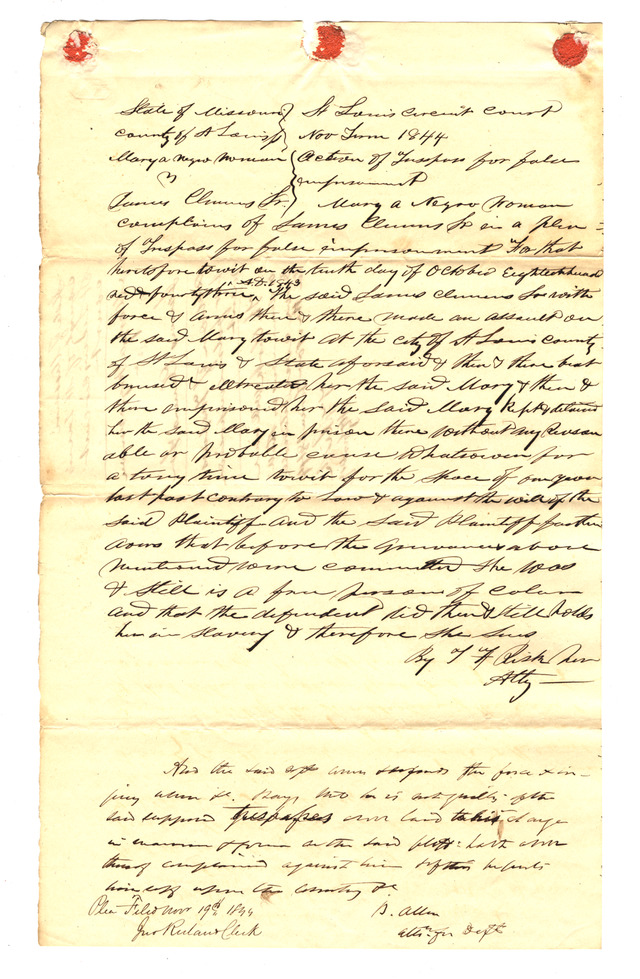 State of Missouri } St Louis Circuit Court
county of St Louis } Nov Term 1844
Mary a Negro Woman { Action of Trespass for false
v imprisonment
James Clemens Jr. } Mary a Negro Woman
complains of James Clemens Jr in a plea
of Trespass for false imprisonment For that
heretofore towit on the tenth day of October Eighteen hund
red & fourty three A.D. 1843 The said James Clemens Jr with
force & arms then & there made an assault on
the said Mary towit at the city of St Louis County
of St Louis & State aforesaid & then & there beat
bruised & illtreated her the said Mary & then &
there imprisoned her the said Mary kept & detained
her the said Mary in prison there without any Reason
able or probable cause whatsoever for
a long time towit for the space of one year
last past contrary to Law & against the will of the
said Plaintiff And the said Plaintiff further
avers that before the Grievances above
mentioned were committed she was
& still is a free person of Color
and that the defendent did then & still holds
her in slavery & therefore she sues
By T W Risk her
Atty

And the said deft comes & defends the force & in-
jury when &c. & says that he is not guilty of the
said supposed trespasses above laid to his charge
in manner & form as the said pltff: hath above
thereof complained against him & of this he puts
himself upon the country &c
Plea Filed Nov 19th 1844 B. Allen
Jno Ruland Clerk atty. for Deft